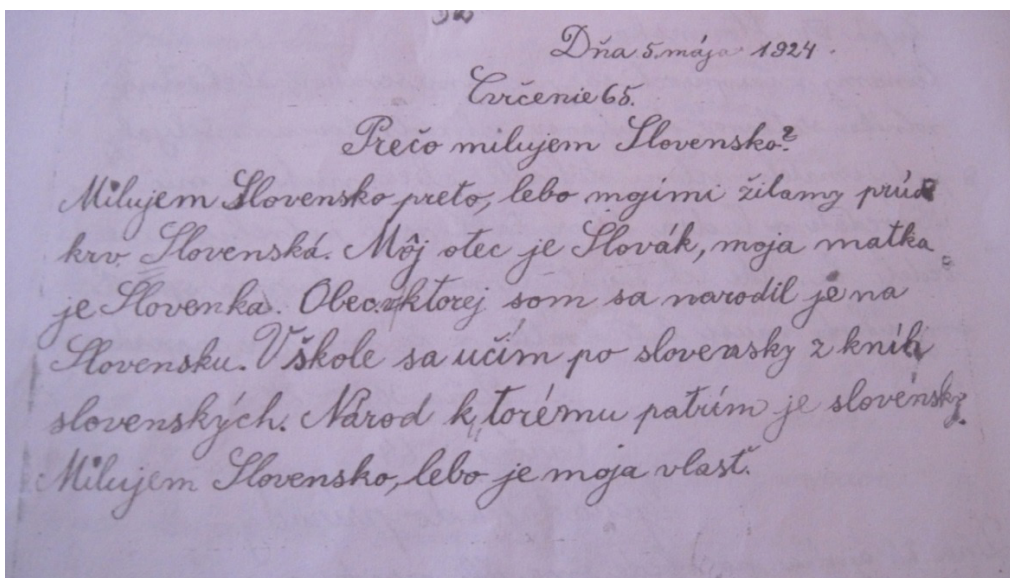 Dňa 5. mája 1924.
Cvičenie 65.
Prečo milujem Slovensko?
Milujem Slovensko preto, lebo mojimi žilamy prúdi
krv Slovenská. Môj otec je Slovák, moja matka
je Slovenka. Obec v ktorej som sa narodil je na
Slovensku. V škole sa učím po slovensky z kníh
slovenských. Národ k torému patrím je slovenský.
Milujem Slovensko, lebo je moja vlasť.